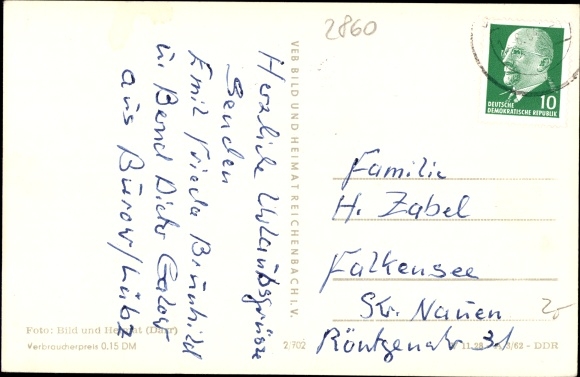 2860
Herzliche Urlaubsgrüsse
Senden
Emil Frieda Brunhild
u. Bernd Dieter
aus Burow/Lübz
VEB BILD UND HEIMAT REICHENBACH I. V.
DEUTSCHE
DEMOKRATISCHE REPUBLIK
10
Familie
H. Zabel
Falkensee
Kr. Nauen
Röntgenstr 31
Foto: Bild und Heimat (Darr)
Verbraucherpreis 0,15 DM
2/702
3/62 - DDR